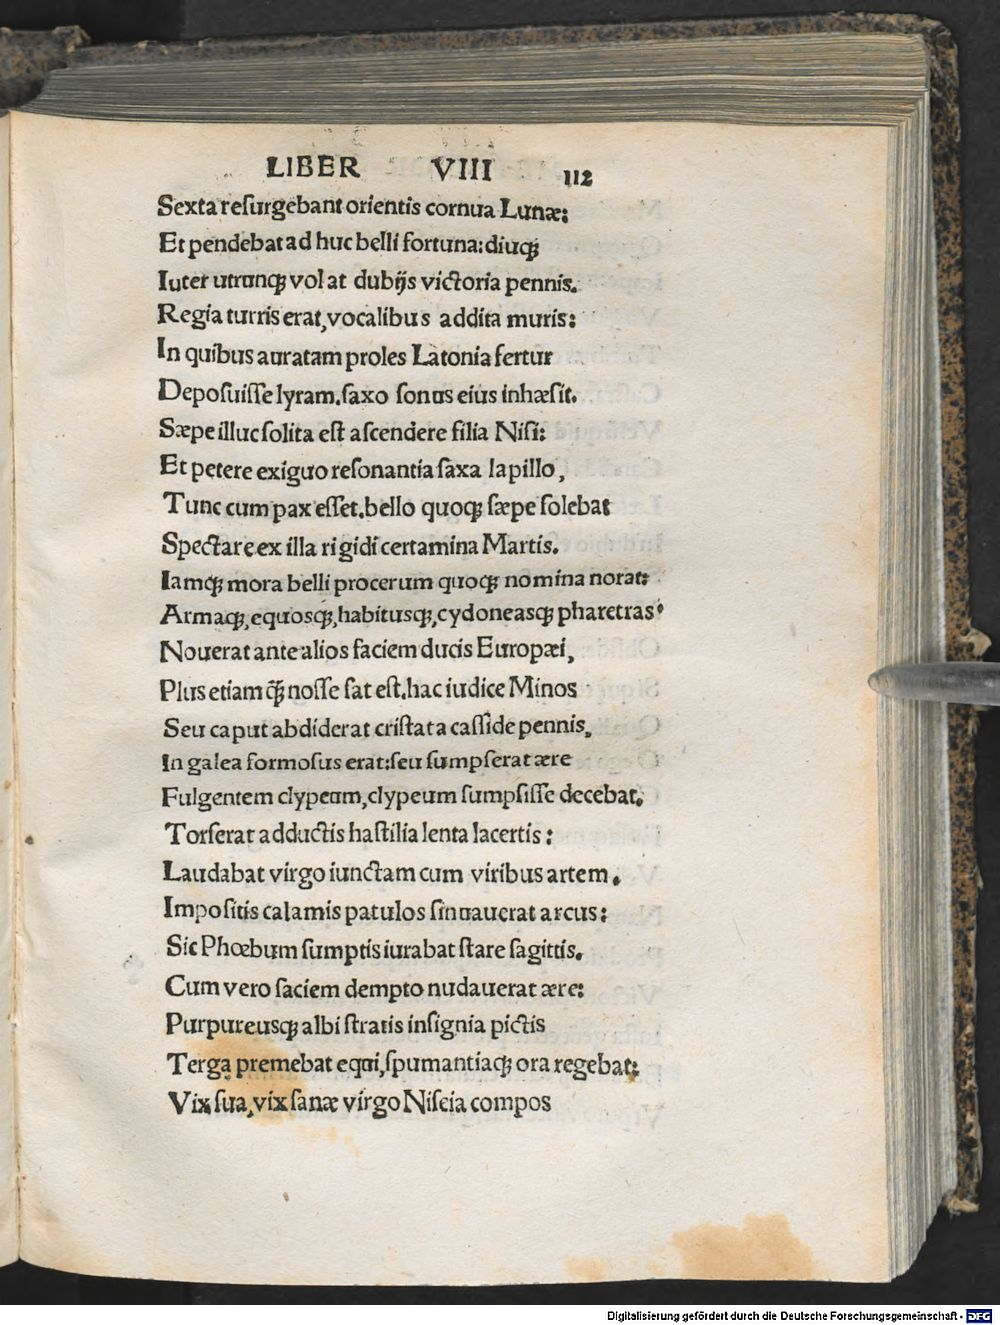 LIBER VIII 112
Sexta resurgebant orientis cornua Lunæ:
Et pendebat ad huc belli fortuna: diuqꝫ
Iuter utrunqꝫ vol at dubijs victoria pennis.
Regia turris erat, vocalibus addita muris:
In quibus auratam proles Latonia fertur
Deposuisse lyram. saxo sonus eius inhæsit.
Sæpe illuc solita est ascendere filia Nisi:
Et petere exiguo resonantia saxa lapillo,
Tunc cum pax esset. bello quoqꝫ sæpe solebat
Spectare ex illa rigidi certamina Martis.
Iamqꝫ mora belli procerum quoqꝫ nomina norat:
Armaqꝫ, equosqꝫ, habitusqꝫ, cydoneasqꝫ pharetras
Nouerat ante alios faciem ducis Europæi,
Plus etiam q̃ꝫ nosse sat est. hac iudice Minos
Seu caput abdiderat cristata casside pennis,
In galea formosus erat: seu sumpserat ære
Fulgentem clypeum, clypeum sumpsisse decebat.
Torserat adductis hastilia lenta lacertis:
Laudabat virgo iunctam cum viribus artem.
Impositis calamis patulos sinuauerat arcus:
Sic Phœbum sumptis iurabat stare sagittis.
Cum vero faciem dempto nudauerat ære:
Purpureusqꝫ albi stratis insignia pictis
Terga premebat equi, spumantiaqꝫ ora regebat:
Vix sua, vix sanæ virgo Niseia compos
Digitalisierung gefördert durch die Deutsche Forschungsgemeinschaft - DFG